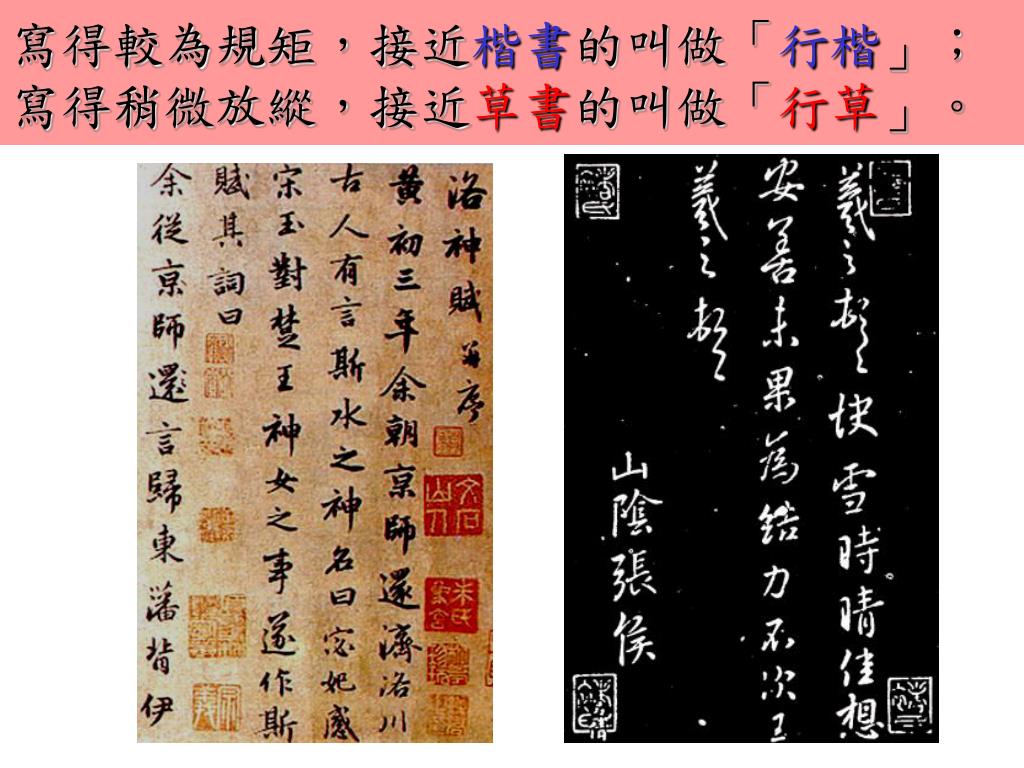 寫得較為規矩，接近楷書的叫做「行楷」；
寫得稍微放縱，接近草書的叫做「行草」。
洛神賦並序
黃初三年余朝京師還濟洛川
古人有言斯水之神名曰宓妃感
宋玉對楚王神女之事遂作斯
賦其詞曰
余從京師還言歸東藩背伊
羲之頓首快雪時晴佳想
安善未果為結力不次王
羲之頓首
山陰張侯